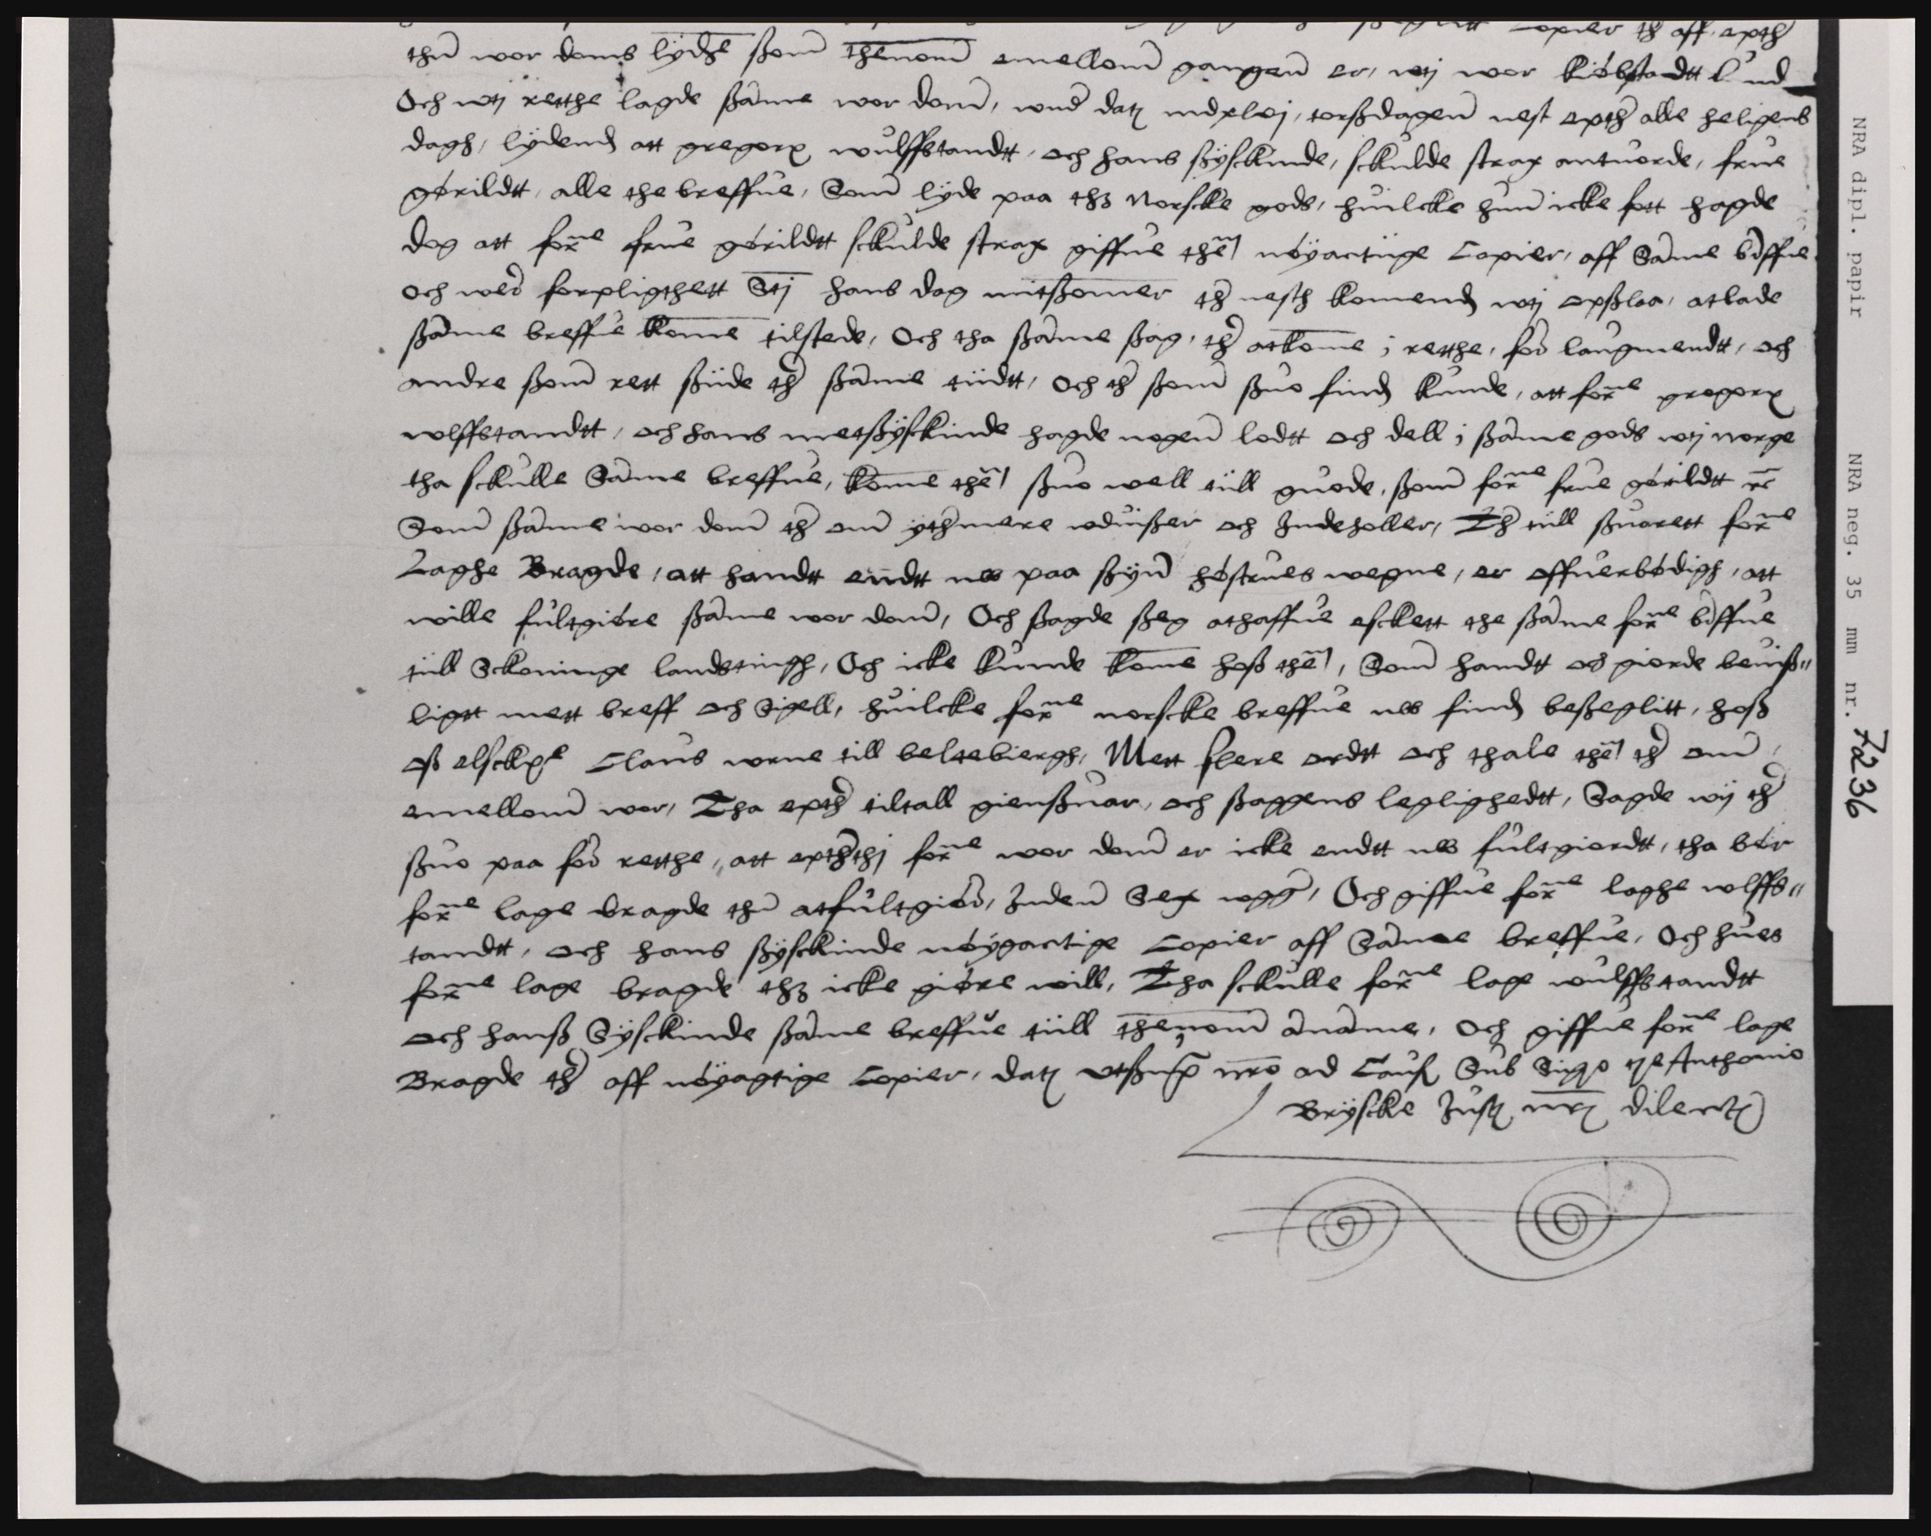 Copier th aff epth
thn wor doms lydhe ßom thenom emellom gangen er, wtj wor kiøbstandtt Lund
Och wtj retthe lagde ßame wor dom, wnd datj mdxlvj, torßdagen nest epth alle heligens
dagh, lydend att gregorx wulffstandtt, och hans ßysckinde, sckulde strax antuorde, frue
gørildtt, alle the breffue, Som lyde paa thz norscke gods, huilcke hun icke fott hagde
dog att forne frue gørildtt sckulde strax giffue them nøyactiige Copier, aff Same breffue
Och wed forpligthett Stj hans dag mitßomer th nesth komend wtj opßloo, atlade
ßame breffue kome tilstede, Och tha ßame ßag, th atkome j retthe, for laugmendtt, och
andre ßom rett ßiide th ßame tiidtt, Och th ßom ßuo find kunde, att forne gregorx
wlffstandtt, och hans metßysckinde hagde nogen lodtt och dell j ßame gods wtj norge
tha sckulle Same breffue, kome them ßuo well tiill guode, ßom forne frue gørildtt rc
Som ßame wor dom th om ythmere wduißer och Indeholler, Th tiill ßuorett forne
Laghe Bragde, att handtt endtt nw paa ßyn høstrues wegne, er offuerbødigh, att
wille fultgiøre ßame wor dom, Och ßagde ßeg athaffue esckett the ßame forne breffue
tiill Sckoninge landstingh, Och icke kunde kome hoß them, Som handtt og giorde beuiß"
ligtt mett breff och Sigell, huilcke forne norscke breffue nw find beßeglitt, hoß
oß elsckge Claus wrne till beltebiergh, Mett flere ordtt och thale them th om
emellom wor, Tha epth tiltall gienßuar, och ßaggens leglighedtt, Sagde wij th
ßuo paa for retthe, att epththj forne wor dom er icke endtt nw fultgiordtt, tha bør
forne lage bragde thn atfultgiør, Inden Sex wgg, Och giffue forne laghe wlffs"
tandtt, och hans ßysckinde nøygactige Copier aff Same breffue, Och hues
forne lage bragde thz icke giøre will, Tha sckulle forne lage wulffstandtt
och hanß Sysckinde ßame breffue tiill thenom aname, Och giffue forne lage
Bragde th aff nøyagtige Copier, datj utßup nro ad Caus Sub Siggo tje Anthonio
Bryscke Justj nrj dilectj
NRA dipl. papir NRA neg. 35 mm nr. 7236